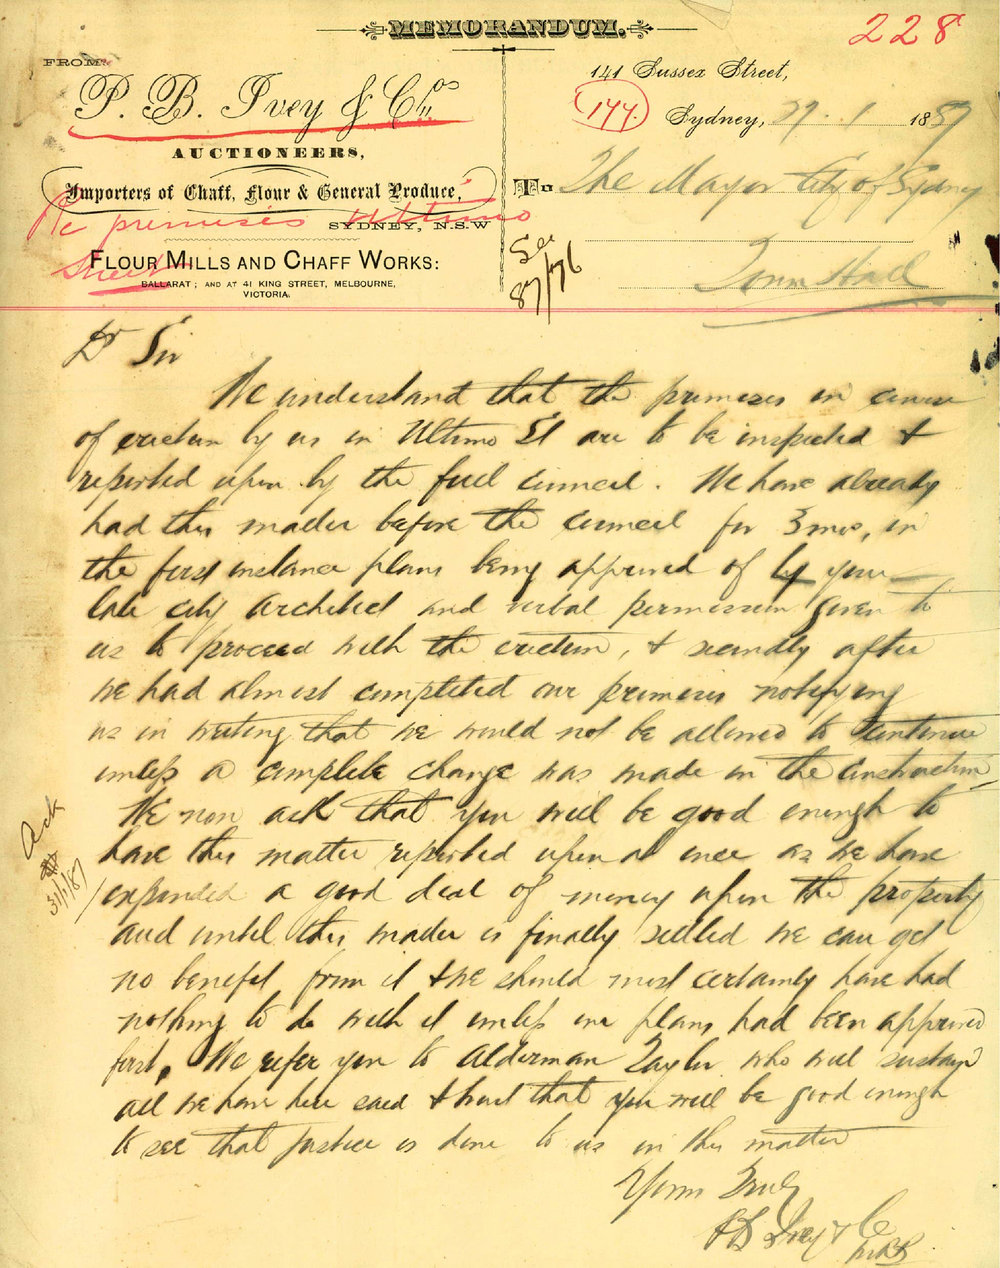 MEMORANDUM.
228
FROM
P. B. Ivey & Co's
141 Sussex Street,
177.
Sydney, 29.1 1887
AUCTIONEERS,
Importers of Chaff, Flour & General Produce,
SYDNEY, N.S.W
Re premises Ultimo
Street
FLOUR MILLS AND CHAFF WORKS:
BALLARAT; AND AT 41 KING STREET, MELBOURNE,
VICTORIA.
To The Mayor City of Sydney
Town Hall
See
87/176
Dr Sir
We understand that the premises in course
of erection by us in Ultimo St are to be inspected &
reported upon by the full council. We have already
had this matter before the council for 3 mos, in
the first instance plans being approved of by your
late city architect and verbal permission given to
us to proceed with the erection, & secondly after
we had almost completed our premises notifying
us in writing that we would not be allowed to continue
unless a complete change was made in the construction
We now ask that you will be good enough to
have this matter reported upon at once as we have
expended a good deal of money upon the property
and until this matter is finally settled we can get
no benefit from it & we should most certainly have had
nothing to do with it unless our plans had been approved
first. We refer you to Alderman Taylor who will sustain
all we have here said & trust that you will be good enough
to see that justice is done to us in this matter
Yours Truly
P B Ivey & Co
Ack
31/1/87